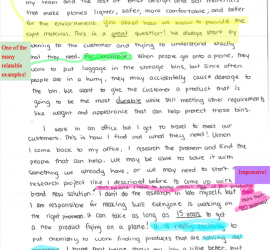 my team and the rest of
that make planes lighter, safer, more comfortable, and better
for the environment. You asked how we know to provide the
right material. This is a great question! We always start by
One of the many relatable examples!
starting to the customer and trying to understand exactly
what they need. For example, When people go on a plane, they
want to put luggage in the storage bins, but since often
people are in a hurry, they may accidentally cause damage to
the bin. We want to give the customer a product that is
going to be the most durable while still meeting other requirements
like weight and appearance that can help protect those bins.
I work in an office but I get to travel to meet our
customers. This is how I find out what they need! When
I come back to my office, I research the problem and find the
people that can help. We may be able to solve it with
something we already have, or we may need to start a
research project like I described before to come up with
Impressive!
brand new solution. I don't do the research in lab myself, but
I am responsible for making sure everyone is working on
the right It can take as long as 15 years to get
more than
a new product flying on a plane! It is really exciting to
put chemistry to work finding products that are solving real